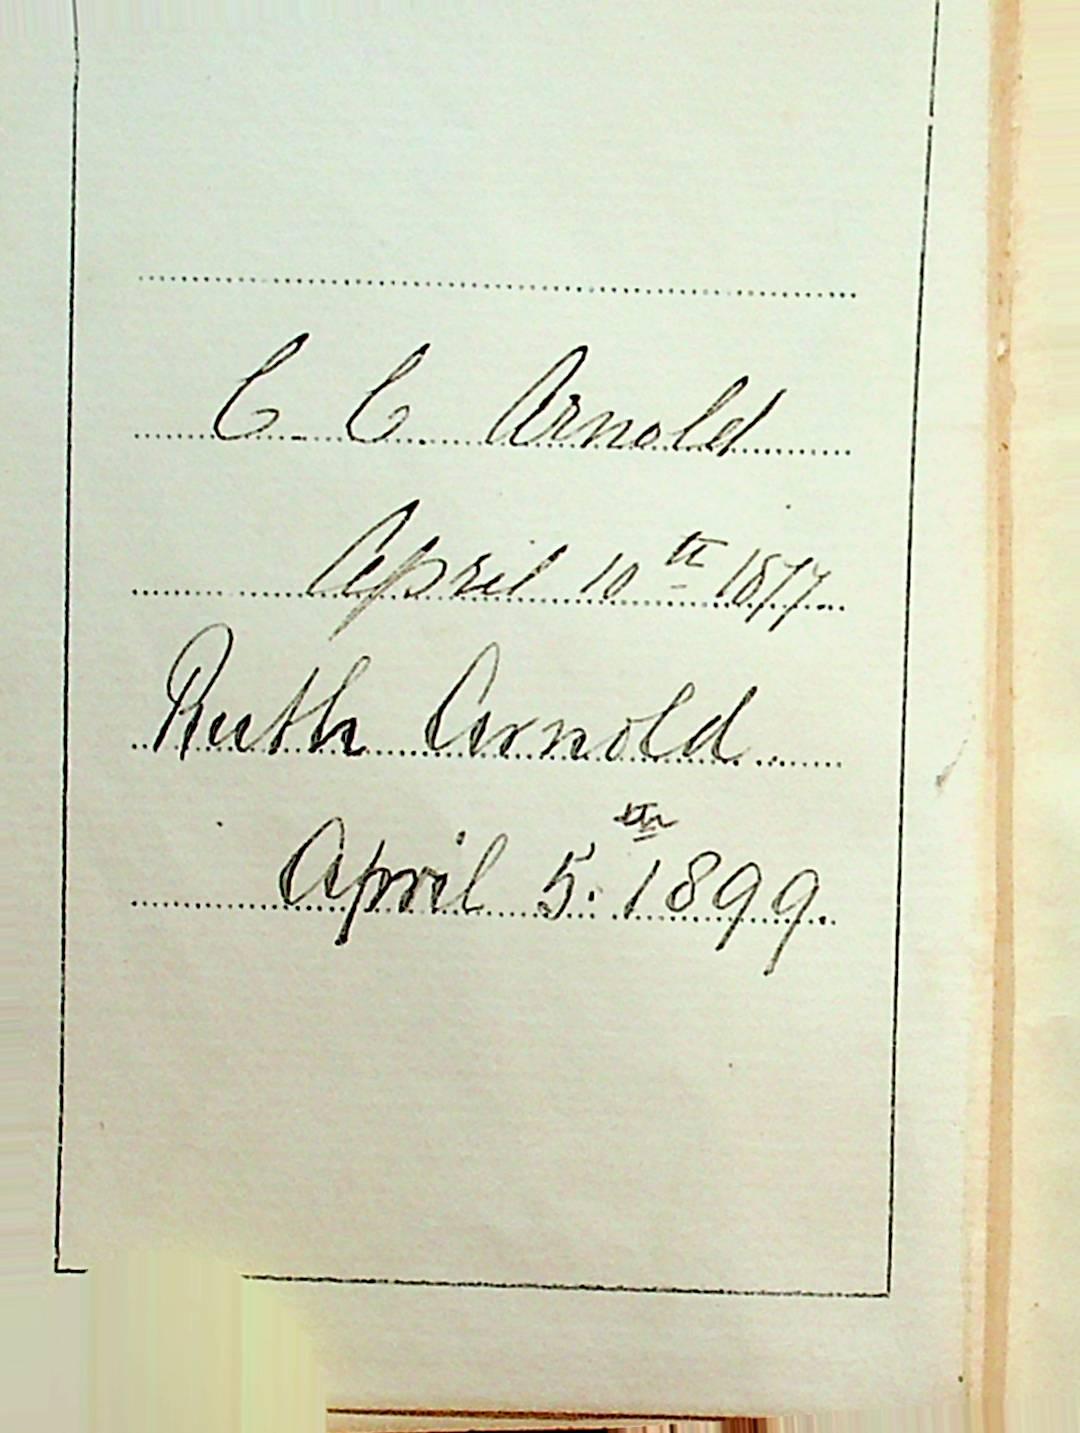 C. C. Arnold
April 10th 1877
Ruth Arnold
April 5th 1899.